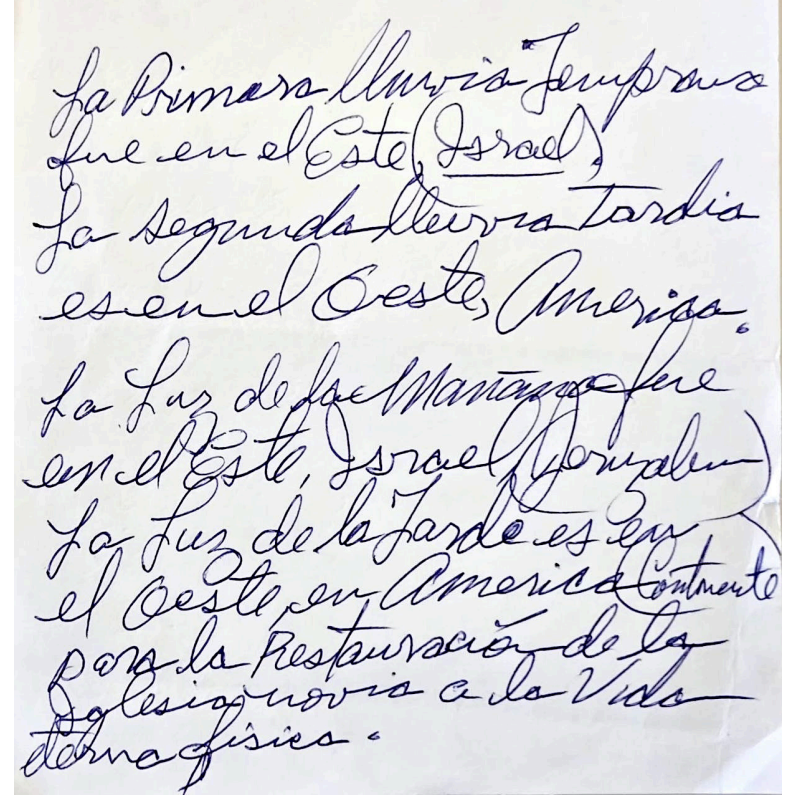 La Primera lluvia Temprana
fue en el Este, (Israel).
La segunda lluvia Tardia
es en el Oeste, America.
La Luz de la Mañana fue
en el Este, Israel, (Jeruzalem)
La Luz de la Tarde es en
el Oeste, en America (Continente
para la Restauración de la
Iglesia novia a la Vida
eterna física.